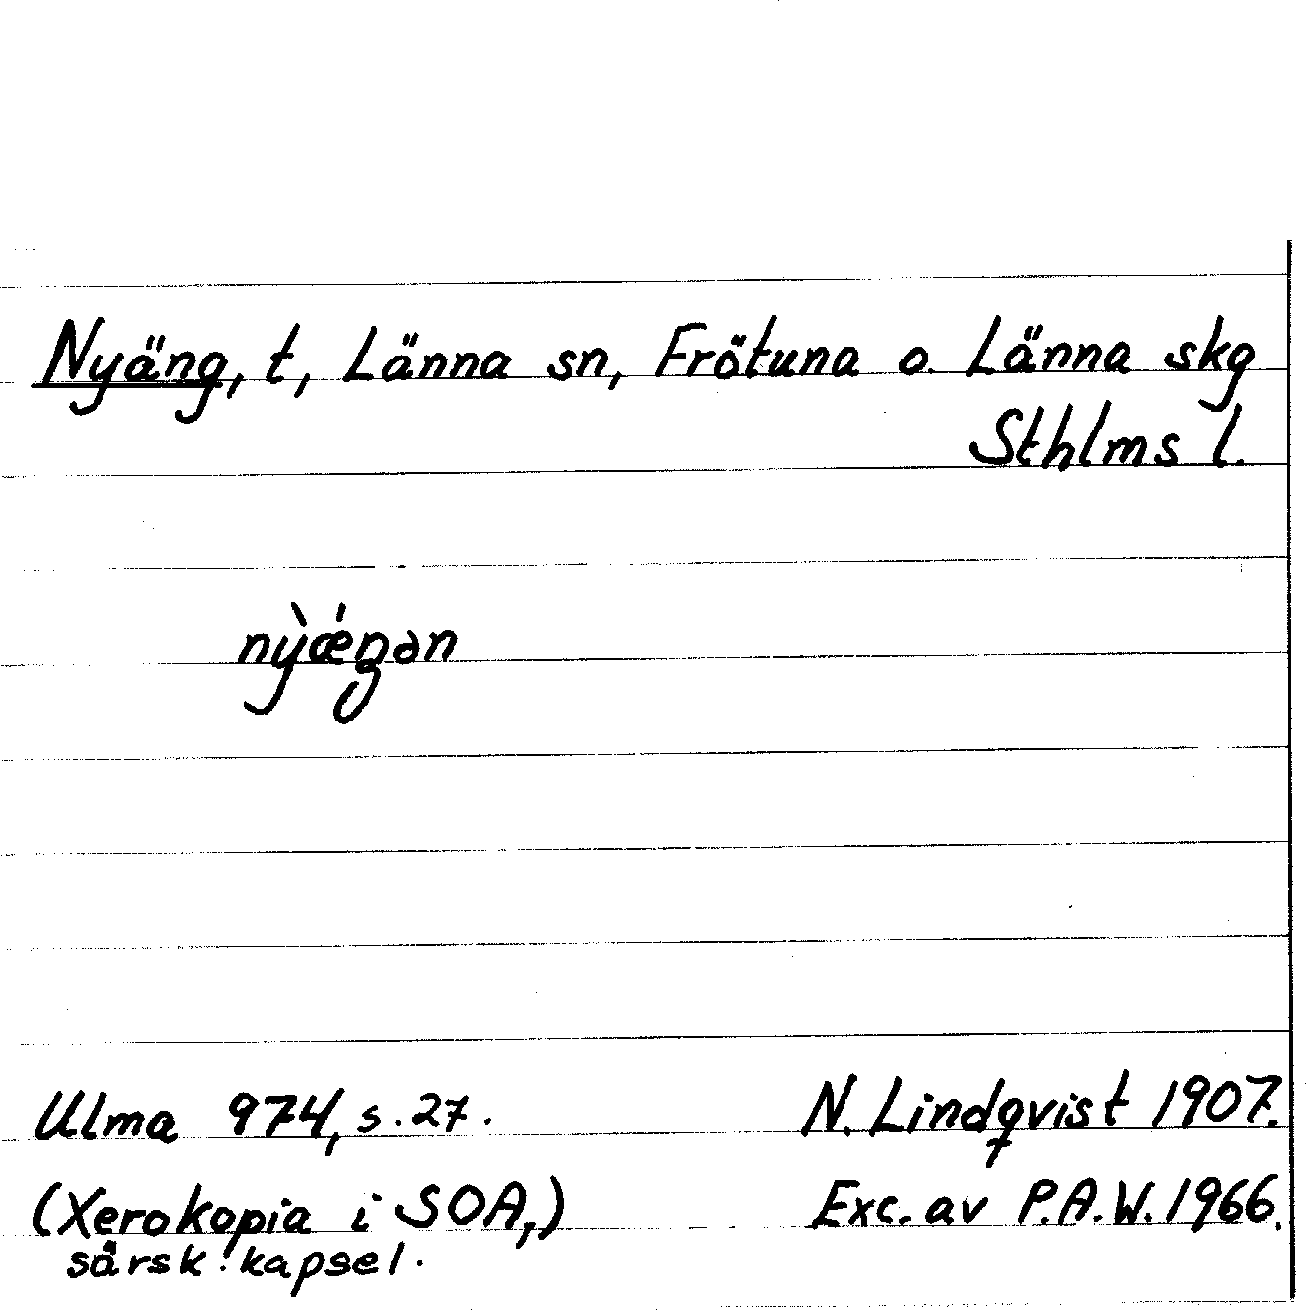 Nyäng, t, Länna sn, Frötuna o. Länna skg
Sthlms l.
nỳǽŋən
Ulma 974, s. 27. N. Lindqvist 1907.
(Xerokopia i SOA,) Exc. av P.A.W. 1966.
särsk. kapsel.